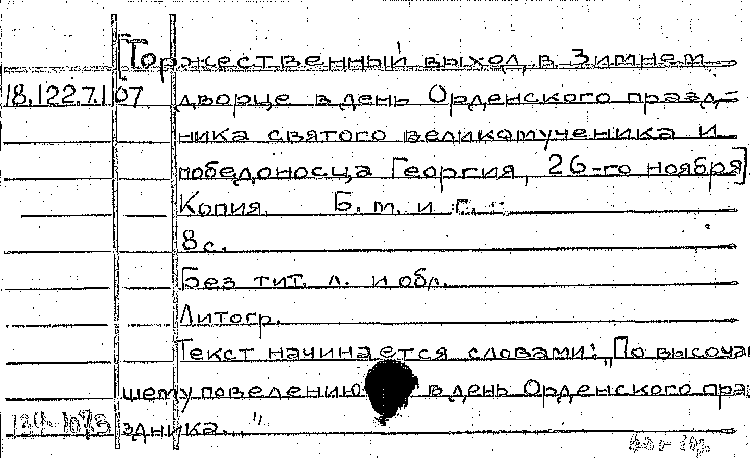 [Торжественный выход в Зимнем
18.122.7.107 дворце в день Орденского празд-
ника святого великомученика и
победоносца Георгия, 26-го ноября]
Копия. Б. м. и г.
8 с.
Без тит. л. и обл.
Литогр.
Текст начинается словами: "По высоча
шему повелению в день Орденского пра
здника..."